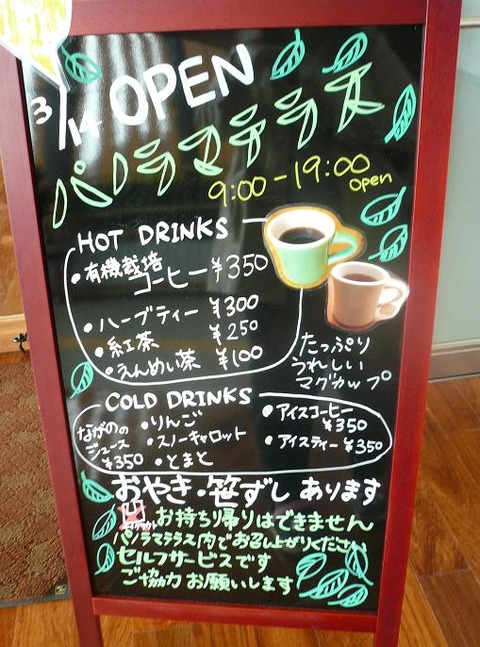 3/14 OPEN
パノラマテラス
9:00-19:00
open
HOT DRINKS
・有機栽培
コーヒー ¥350
・ハーブティー ¥300
・紅茶 ¥250
・えんめい茶 ¥100
たっぷり
うれしい
マグカップ
COLD DRINKS
ながのの
ジュース
¥350
・りんご
・スノーキャロット
・とまと
・アイスコーヒー
¥350
・アイスティー ¥350
おやき・笹ずし あります
お持ち帰りはできません
パノラマテラス内でお召し上がりください
セルフサービスです
ご協力お願いします